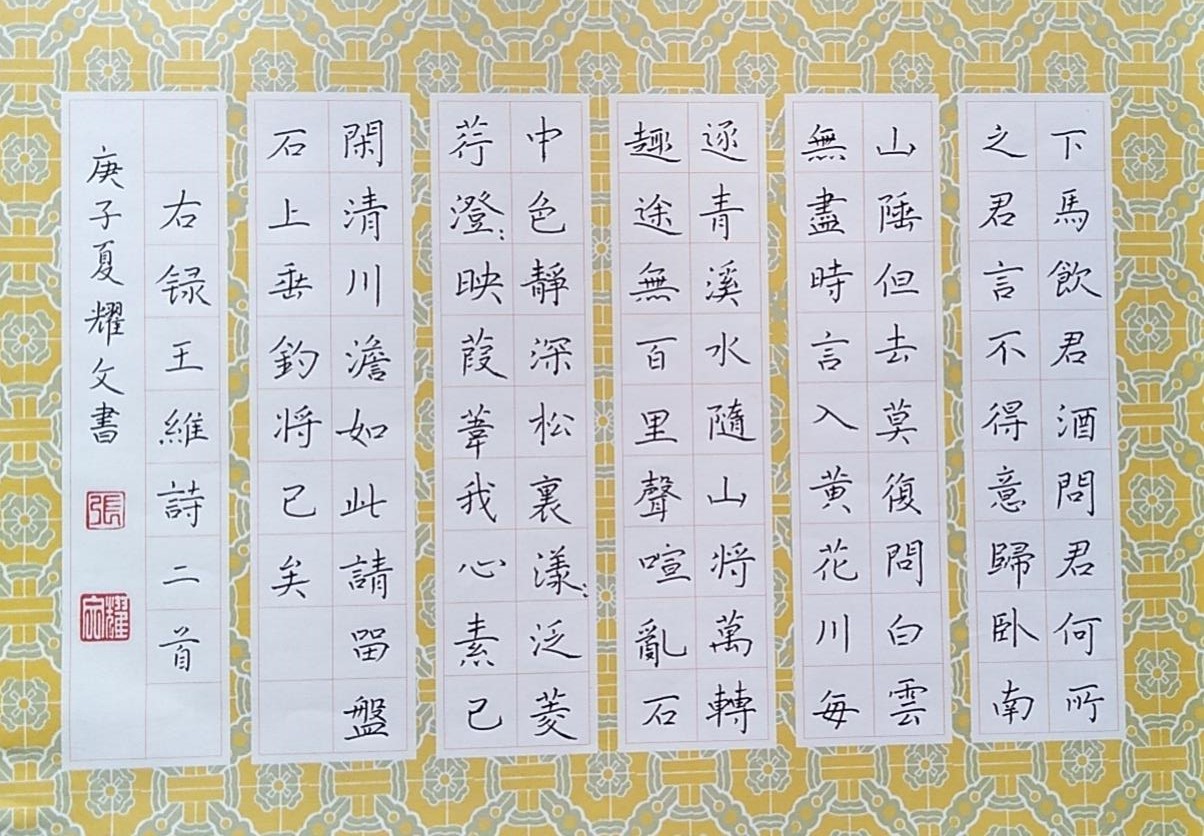 下馬飲君酒問君何所
之君言不得意歸臥南
山陲但去莫復問白雲
無盡時言入黄花川每
逐青溪水隨山將萬轉
趣途無百里聲喧亂石
中色靜深松裏漾:泛菱
荇澄:映葭葦我心素已
閑清川澹如此請留盤
石上垂釣将已矣
右録王維詩二首
庚子夏耀文書
張
耀文